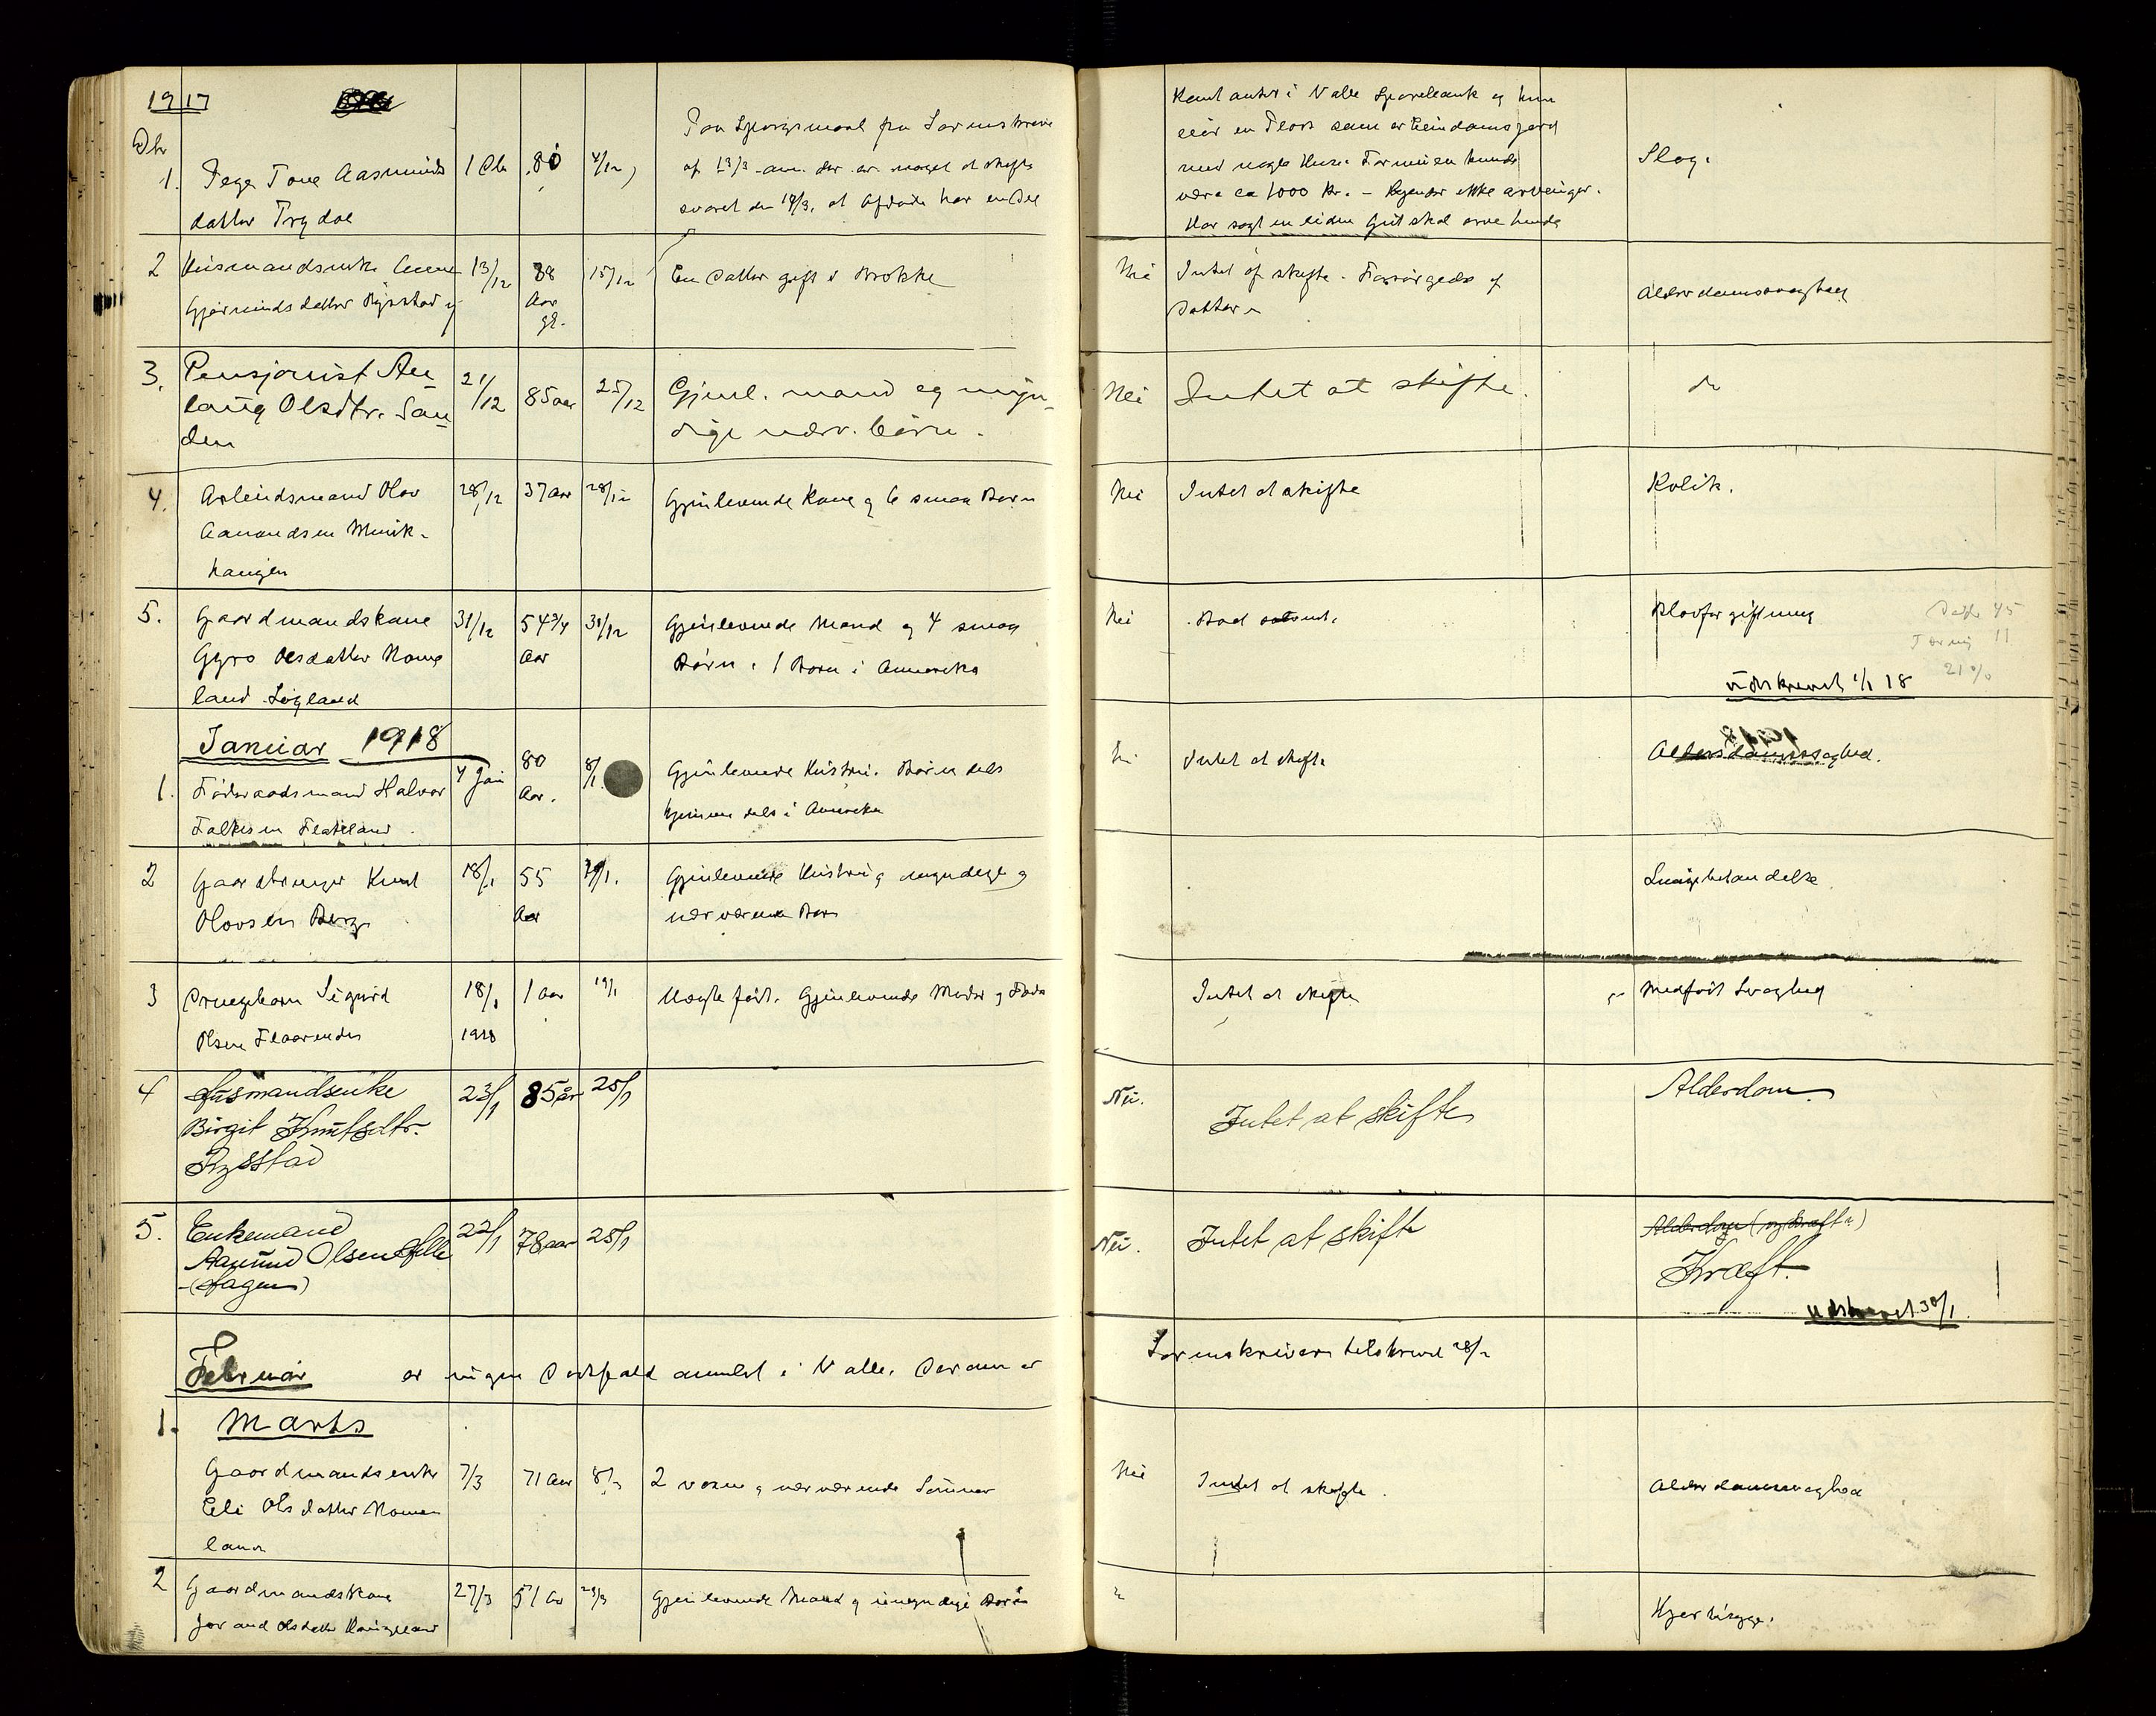 1917
Dbr
1. Pige Tone Aasmunds
datter Trydal
1 Db
80
4/12
Paa Spørgsmaal fra Sorenskriver
af 13/3 om der er noget at skifte
svaret den 19/3, at Afdøde har en Del
Kontanter i Valle Sparebank og hun
eier en Plads som er Eiendomsjord
med nogle Huse. Formuen kunde
være ca 1000 Kr. - Kjender ikke arvinger.
Har sagt en liden Gut skal arve hende
Slag.
2 Husmandsenke Anne
Gjermundsdatter Rysstad
13/12
88
Aar
gl.
15/12
En Datter gift i Brokke
Nei
Intet at skifte. Forsørgedes af
Datter
Alderdomssvaghed
3. Pensjonist An-
laug Olsdtr. San-
den
21/12
85 aar
25/12
Gjenl. mand og myn-
dige nærv. børn.
Nei
Intet at skifte.
do
4. Arbeidsmand Olav
Aanundsen Munk-
haugen
28/12
37 aar
28/12
Gjenlevende Kone og 6 smaa Børn
Nei
Intet at skifte
Kolik.
5. Gaardmandskone
Gyro Olsdatter Home
land Løgland
31/12
54 3/4
Aar
31/12
Gjenlevende Mand og 4 smaa
Børn. 1 Barn i Amerika
Nei
Bad
Blodforgiftning
45
11
21 %
Udskrevet 1/1 18
Januar 1918
1. Føderaadsmand Halvor
Folkesen Flateland
4 Jan
80
Aar.
8/1.
Gjenlevende Hustru. Børn dels
hjemme dels i Amerika
Intet at skifte
Alderdomssvaghed.
2 Gaardbruger Knut
Olovsen Berg
18/1
55
Aar
Gjenlevende Hustru og myndige og
nærværende Børn
Lungebetændelse
3 Drengebarn Sigurd
Olsen Flaarenden
18/1
1918
1 aar
19/1
Uægte født. Gjenlevende Moder og Fader
Intet at skifte
Medfødt Svaghed
4 Husmandsenke
Birgit Knutsdtr.
Rysstad
23/1
85 år
25/1
Nei.
Intet at skifte
Alderdom.
5. Enkemand
Aanund Olsen Helle
(Hagen)
22/1
78 aar
25/1
Nei.
Intet at skifte
Alderdom (og Kræft)
Kræft.
Udskrevet 30/1.
Februar er ingen Dødsfald anmeldt i Valle. Derom er
Sorenskriveren tilskrevet 28/2
Marts
1. Gaardmandsenke
Eli Olsdatter Homme
land
7/3
71 Aar
8/3
2 voxne og nærværende Sønner
Nei
Intet at skifte.
Alderdomssvaghed
2 Gaardmandskone
Jorand Olsdatter Haugeland
27/3
51 Aar
29/3
Gjenlevende Mand og umyndige Børn